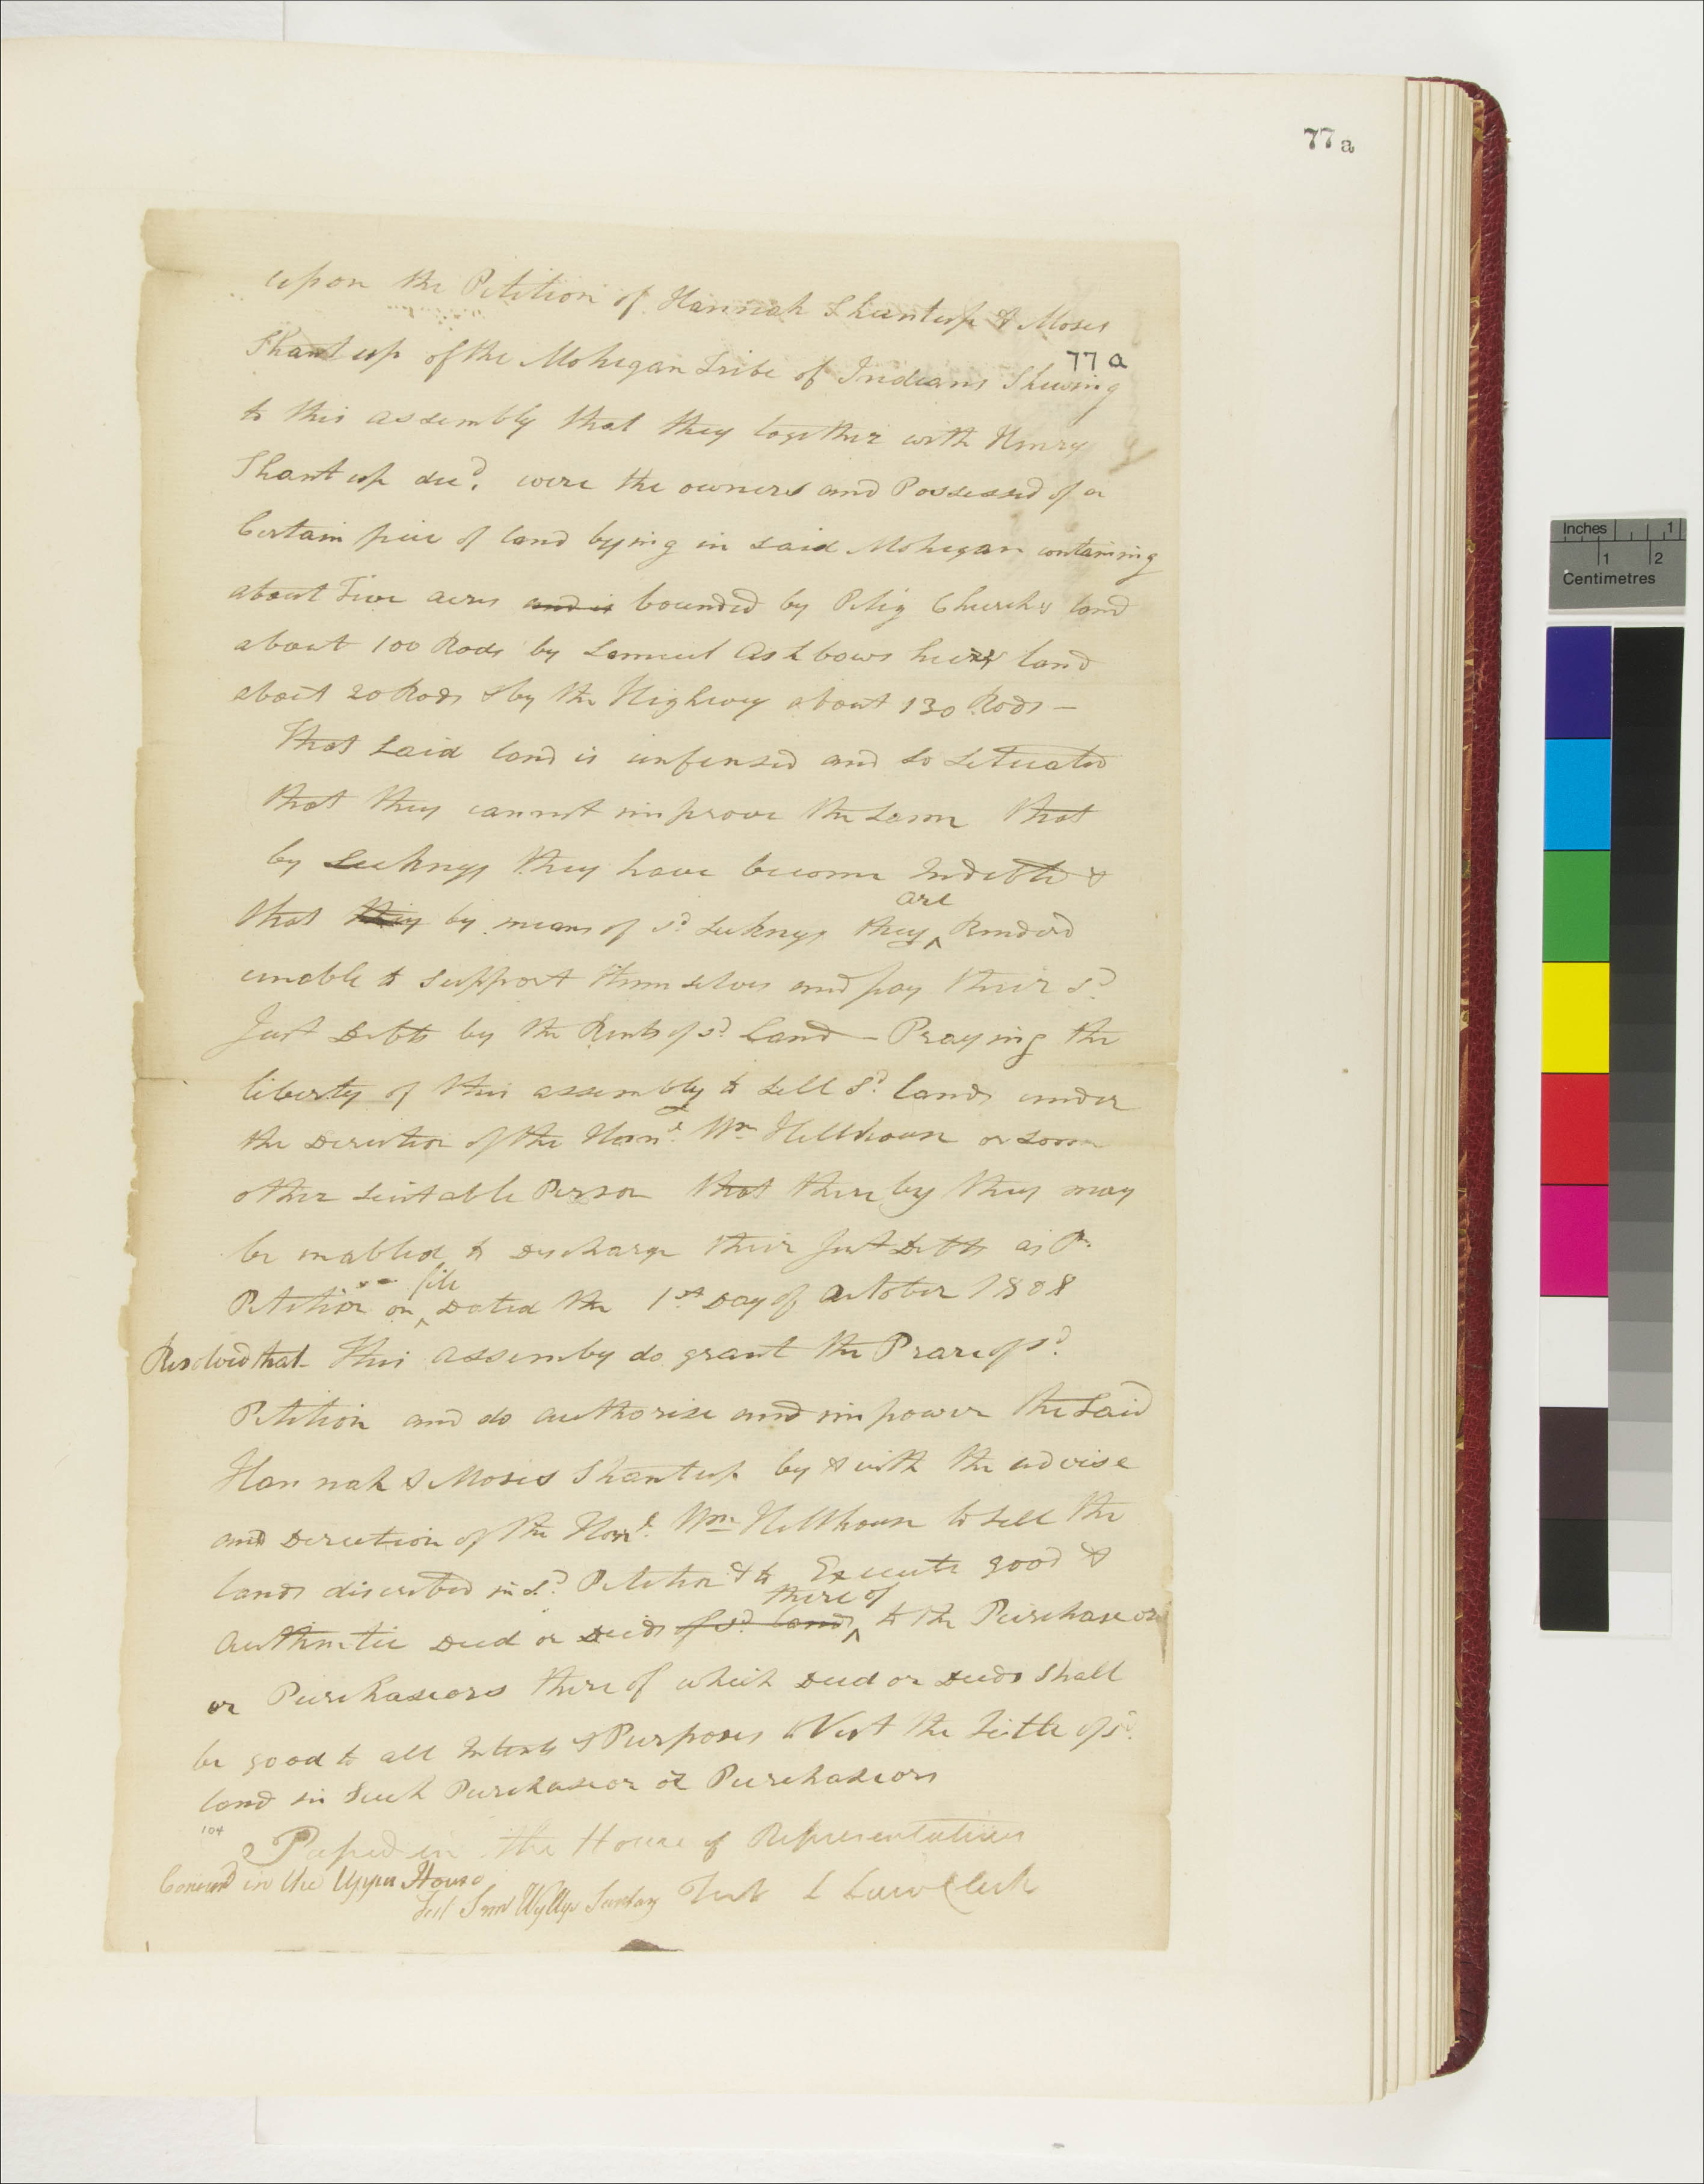 77 a
upon the Petition of Hannah Shuntup & Moses
Shantup of the Mohegan Tribe of Indians Shewing
77 a
to this assembly that they together with Henry
Shantup decd. were the owners and Possessed of a
Certain piec of land lying in said Mohegan containing
about Five acres and is bounded by Pelig Churchs land
about 100 Rods by Lemuel Ashbows heirs land
about 20 Rods & by the Highway about 130 Rods —
That said land is unfensed and so setuated
that they cannot improve the same that
by Seekness they have become Indebted &
are
that they by means of sd. seekness they ^ Rendred
unable to support themselves and pay their sd.
Just Debts by the Rents of sd. Land — Praying the
liberty of this assembly to sell sd. lands under
the Derection of the Honl. Wm Hillhouse or some
other suitable Person that there by they may
be enabled to Discharge their Just Debts as Pr.
file
Petition on ^ Dated the 1st Day of October 1808
Resolved that this assemby do grant the Prare of sd.
Petition and do authorise and impower the said
Hannah & Moses Shantup by & with the advise
and Derection of the Honl. Wm Hillhouse to sell the
lands discribed in sd. Petition & to Execute good &
there of
authentic Deed or Deeds of sd. lands ^ to the Purchaseor
or Purchaseors there of which Deed or Deeds shall
be good to all Intents & Purposes to Vest the Title of sd.
land in such Purchaseor or Purchaseors
104
Passed in the House of Representatives
Concurd in the Upper House
Test Saml Wyllys Secretary Test L Law Clerk